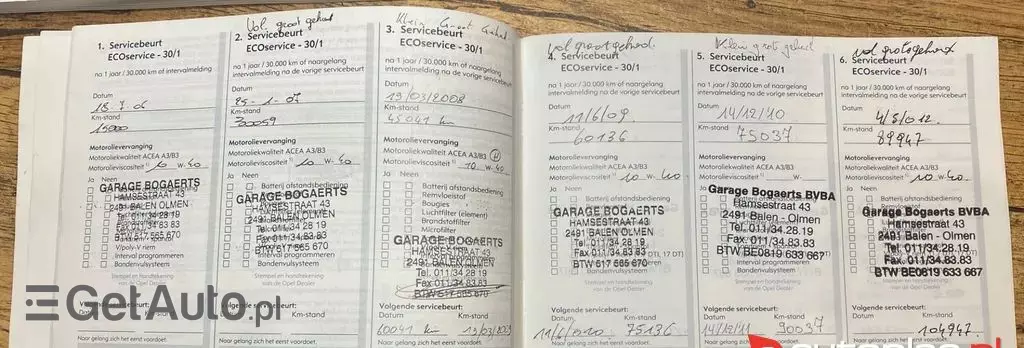 Vol groot gehad
1. Servicebeurt
ECOservice - 30/1
na 1 jaar / 30.000 km of naargelang
intervalmelding
Datum
18-7-06
Km-stand
15000
Motorolievervanging
Motoroliekwaliteit ACEA A3/B3
Motorolieviscositeit 10 w-40
Ja Neen
GARAGE BOGAERTS
HAMSESTRAAT 43
2491 BALEN OLMEN
Tel. 011/34 28 19
Fax 011/34 83 83
BTW 617 565 670
V/poly-V riem
Interval programmeren
Bandenvulsysteem
Stempel en handtekening
van de Opel Dealer
Volgende servicebeurt:
Km-stand
Naar gelang zich het eerst voordoet.
2. Servicebeurt
ECOservice - 30/1
na 1 jaar / 30.000 km of naargelang
intervalmelding na de vorige servicebeurt
Datum
25-1-07
Km-stand
30059
Motorolievervanging
Motoroliekwaliteit ACEA A3/B3
Motorolieviscositeit 10 w-40
Ja Neen
Batterij afstandsbediening
GARAGE BOGAERTS
HAMSESTRAAT 43
2491 BALEN OLMEN
Tel. 011/34 28 19
Fax. 011/34.83.83
BTW 617 565 670
Interval programmeren
Bandenvulsysteem
Stempel en handtekening
van de Opel Dealer
Volgende servicebeurt:
Datum Km-stand
Naar gelang zich het eerst voordoet.
Klein Groot Gehad
3. Servicebeurt
ECOservice - 30/1
na 1 jaar / 30.000 km of naargelang
intervalmelding na de vorige servicebeurt
Datum
19/03/2008
Km-stand
45041 km
Motorolievervanging
Motoroliekwaliteit ACEA A3/B3
Motorolieviscositeit 10 w-40
Ja Neen
Batterij afstandsbediening
Remvloeistof
Bougies
Luchtfilter (element)
Brandstoffilter
Microfilter
GARAGE BOGAERTS
HAMSESTRAAT 43
2491 BALEN OLMEN
Tel. 011/34 28 19
Fax. 011/34.83.83
BTW 617 565 670
Volgende servicebeurt:
Datum Km-stand
60041 km 19/03/2009
Naar gelang zich het eerst voordoet.
Vol groot gehad
4. Servicebeurt
ECOservice - 30/1
na 1 jaar / 30.000 km of naargelang
intervalmelding na de vorige servicebeurt
Datum
11/6/09
Km-stand
60136
Motorolievervanging
Motoroliekwaliteit ACEA A3/B3
Motorolieviscositeit 10 w-40
Ja Neen
Batterij afstandsbediening
Remvloeistof
GARAGE BOGAERTS
HAMSESTRAAT 43
2491 BALEN OLMEN
Tel. 011/34 28 19
Fax. 011/34.83.83
BTW 617 565 670
Bandenvulsysteem
Stempel en handtekening
van de Opel Dealer
Volgende servicebeurt:
Datum Km-stand
11/6/010 75136
Naar gelang zich het eerst voordoet.
Klein grote gehad
5. Servicebeurt
ECOservice - 30/1
na 1 jaar / 30.000 km of naargelang
intervalmelding na de vorige servicebeurt
Datum
14/12/10
Km-stand
75037
Motorolievervanging
Motoroliekwaliteit ACEA A3/B3
Motorolieviscositeit W-
Ja Neen
Garage Bogaerts BVBA
Hamsestraat 43
2491 Balen - Olmen
Tel. 011/34.28.19
Fax 011/34.83.83
BTW BE0819 633 667
Bandenvulsysteem
Stempel en handtekening
van de Opel Dealer
Volgende servicebeurt:
Datum Km-stand
14/12/11 90037
Naar gelang zich het eerst voordoet.
vol grote gehad
6. Servicebeurt
ECOservice - 30/1
na 1 jaar / 30.000 km of naargelang
intervalmelding na de vorige servicebeurt
Datum
4/5/012
Km-stand
89947
Motorolievervanging
Motoroliekwaliteit ACEA A3/B3
Motorolieviscositeit 10 w-40
Ja Neen
Batterij afstandsbediening
Garage Bogaerts BVBA
Hamsestraat 43
2491 Balen - Olmen
Tel. 011/34.28.19
Fax 011/34.83.83
BTW BE0819 633 667
Stempel en handtekening
van de Opel Dealer
Volgende servicebeurt:
Datum Km-stand
104947
Naar gelang zich het eerst voordoet.
GetAuto.pl